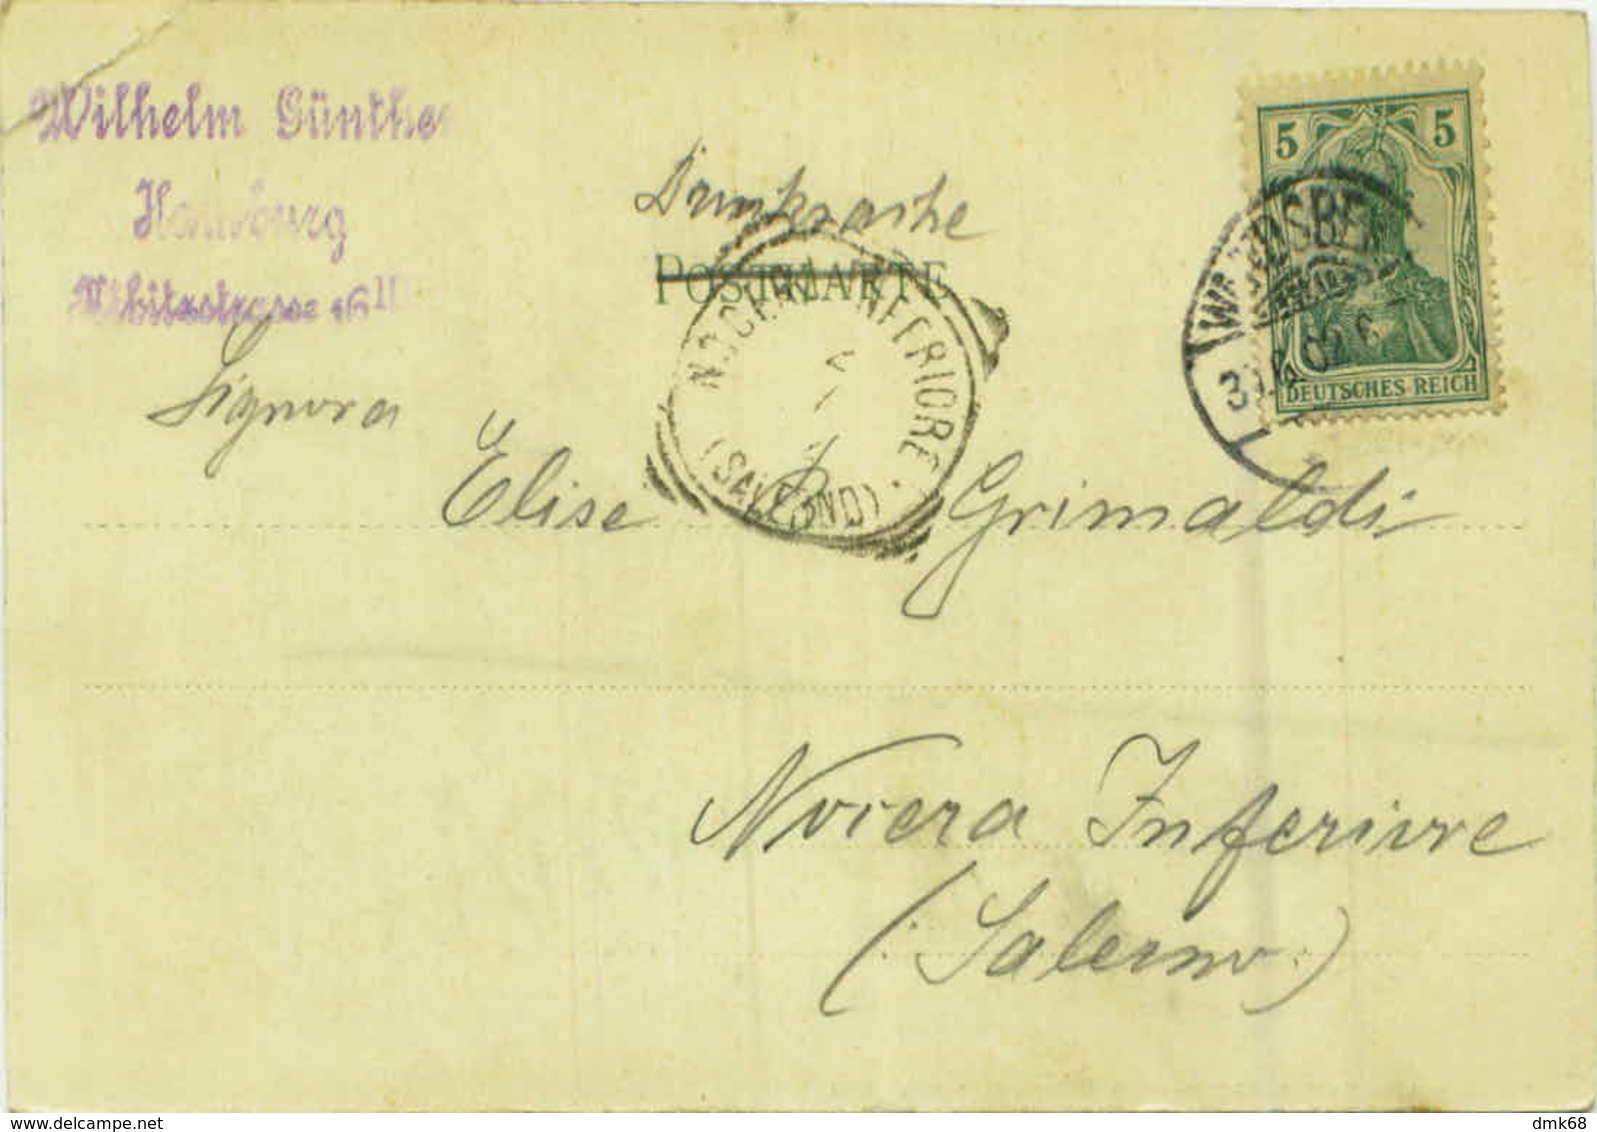 Wilhelm Günther
Hamburg
Drucksache
POSTKARTE
5 5
DEUTSCHES REICH
NOCERA INFERIORE
(SALERNO)
Signora
Elise Grimaldi
Nocera Inferiore
(Salerno)
www.delcampe.net
dmk68